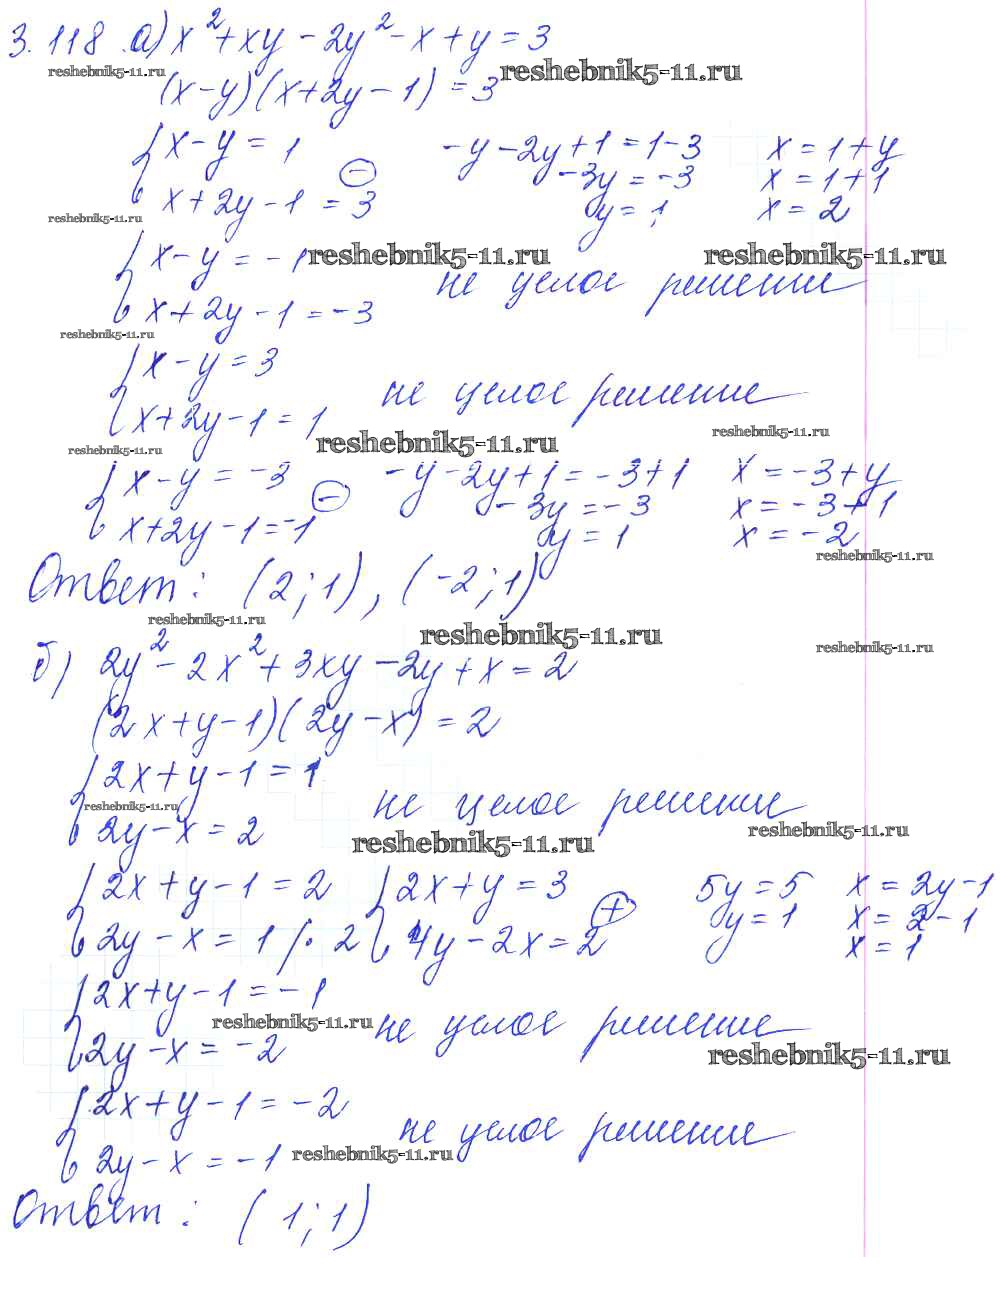 3.118 а) x² + xy - 2y² - x + y = 3
reshebnik5-11.ru reshebnik5-11.ru
(x-y)(x+2y-1) = 3
{ x-y = 1 -y-2y+1=1-3 x=1+y
⊖ -3y=-3 x=1+1
x+2y-1=3 y=1 x=2
reshebnik5-11.ru
{ x-y=-1 reshebnik5-11.ru reshebnik5-11.ru
не целое решение
x+2y-1=-3
reshebnik5-11.ru
{ x-y=3
не целое решение
x+2y-1=1
reshebnik5-11.ru reshebnik5-11.ru reshebnik5-11.ru
{ x-y=-3 -y-2y+1=-3+1 x=-3+y
⊖ -3y=-3 x=-3+1
x+2y-1=-1 y=1 x=-2
reshebnik5-11.ru
Ответ: (2;1), (-2;1)
reshebnik5-11.ru reshebnik5-11.ru reshebnik5-11.ru
б) 2y² - 2x² + 3xy - 2y + x = 2
(2x+y-1)(2y-x) = 2
{ 2x+y-1=1
reshebnik5-11.ru не целое решение
2y-x=2 reshebnik5-11.ru reshebnik5-11.ru
{ 2x+y-1=2 { 2x+y=3 5y=5 x=2y-1
⊕ y=1 x=2-1
2y-x=1 /·2 4y-2x=2 x=1
{ 2x+y-1=-1
reshebnik5-11.ru не целое решение
2y-x=-2 reshebnik5-11.ru
{ 2x+y-1=-2
не целое решение
2y-x=-1 reshebnik5-11.ru
Ответ: (1;1)